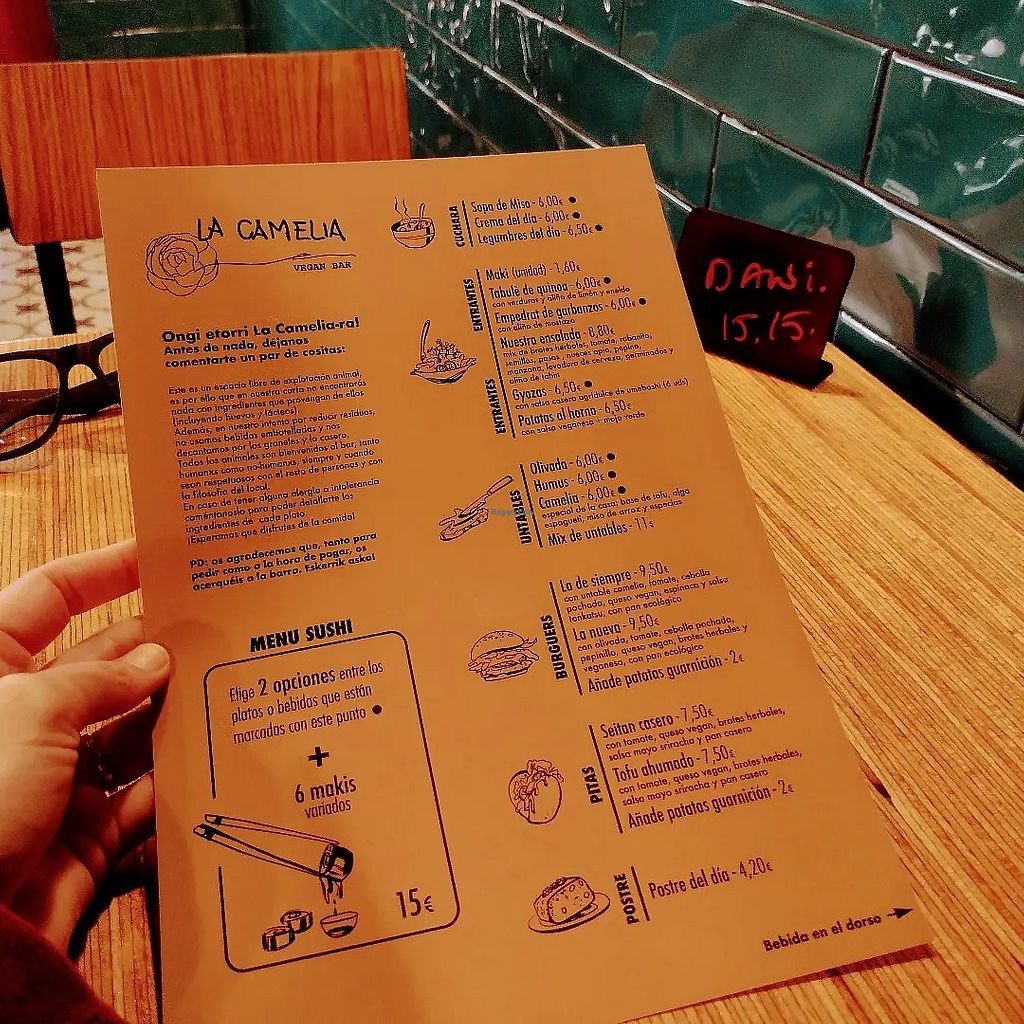 LA CAMELIA
VEGAN BAR
Ongi etorri La Camelia-ra!
Antes de nada, déjanos
comentarte un par de cositas:
Este es un espacio libre de explotación animal,
es por ello que en nuestra carta no encontrarás
nada con ingredientes que provengan de ellos
(incluyendo huevos y lácteos).
Además, en nuestro intento por reducir residuos,
no usamos bebidas embotelladas y nos
decantamos por los graneles y lo casero.
Todos los animales son bienvenidos al bar, tanto
humanxs como no-humanxs, siempre y cuando
sean respetuosos con el resto de personas y con
la filosofía del local.
En caso de tener alguna alergia o intolerancia
coméntanoslo para poder detallarte los
ingredientes de cada plato.
¡Esperamos que disfrutes de la comida!
PD: os agradecemos que, tanto para
pedir como a la hora de pagar, os
acerquéis a la barra. Eskerrik asko!
MENU SUSHI
Elige 2 opciones entre los
platos o bebidas que están
marcados con este punto ●
+
6 makis
variados
15€
CUCHARA
Sopa de Miso - 6,00€ ●
Crema del día - 6,00€ ●
Legumbres del día - 6,50€ ●
ENTRANTES
Maki (unidad) - 1,60€
Tabulé de quinoa - 6,00€ ●
con verduras y aliño de limón y eneldo
Empedrat de garbanzos - 6,00€ ●
con aliño de mostaza
Nuestra ensalada - 8,80€
mix de brotes herbales, tomate, rabanito,
semillas, pasas, nueces apio, pepino,
manzana, levadura de cerveza, germinados y
aliño de tahin
ENTRANTES
Gyozas - 6,50€ ●
con salsa casera agridulce de umeboshi (6 uds)
Patatas al horno - 6,50€
con salsa veganesa + mojo verde
UNTABLES
Olivada - 6,00€ ●
Humus - 6,00€ ●
Camelia - 6,00€ ●
especial de la casa; base de tofu, alga
espagueti, miso de arroz y especias
Mix de untables - 11€
BURGUERS
La de siempre - 9,50€
con untable camelia, tomate, cebolla
pochada, queso vegan, espinaca y salsa
tonkatsu, con pan ecológico
La nueva - 9,50€
con olivada, tomate, cebolla pochada,
pepinillo, queso vegan, brotes herbales y
veganesa, con pan ecológico
Añade patatas guarnición - 2€
PITAS
Seitan casero - 7,50€
con tomate, queso vegan, brotes herbales,
salsa mayo sriracha y pan casero
Tofu ahumado - 7,50€
con tomate, queso vegan, brotes herbales,
salsa mayo sriracha y pan casero
Añade patatas guarnición - 2€
POSTRE
Postre del día - 4,20€
Bebida en el dorso
DANI.
15.15.